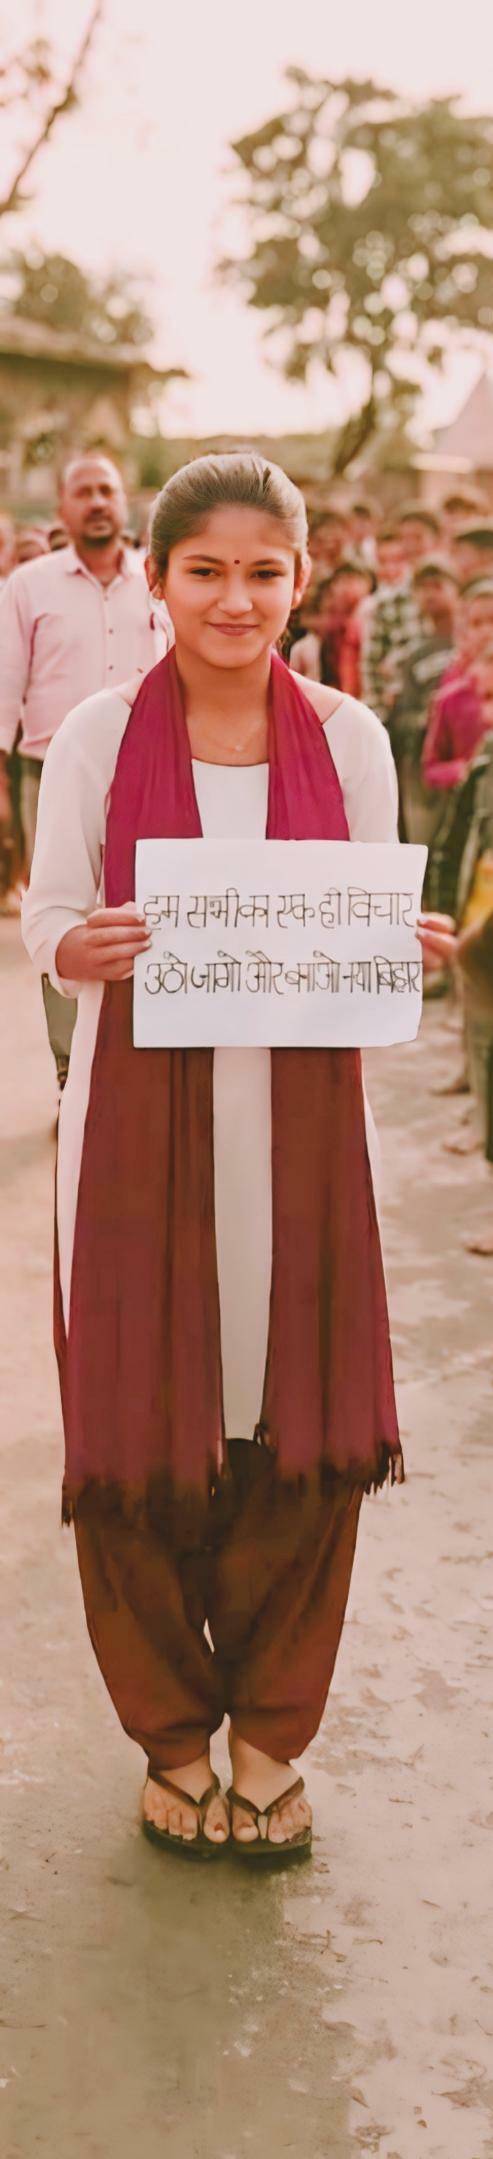 हम सभी का एक ही विचार
उठो जागो और बनाओ नया बिहार